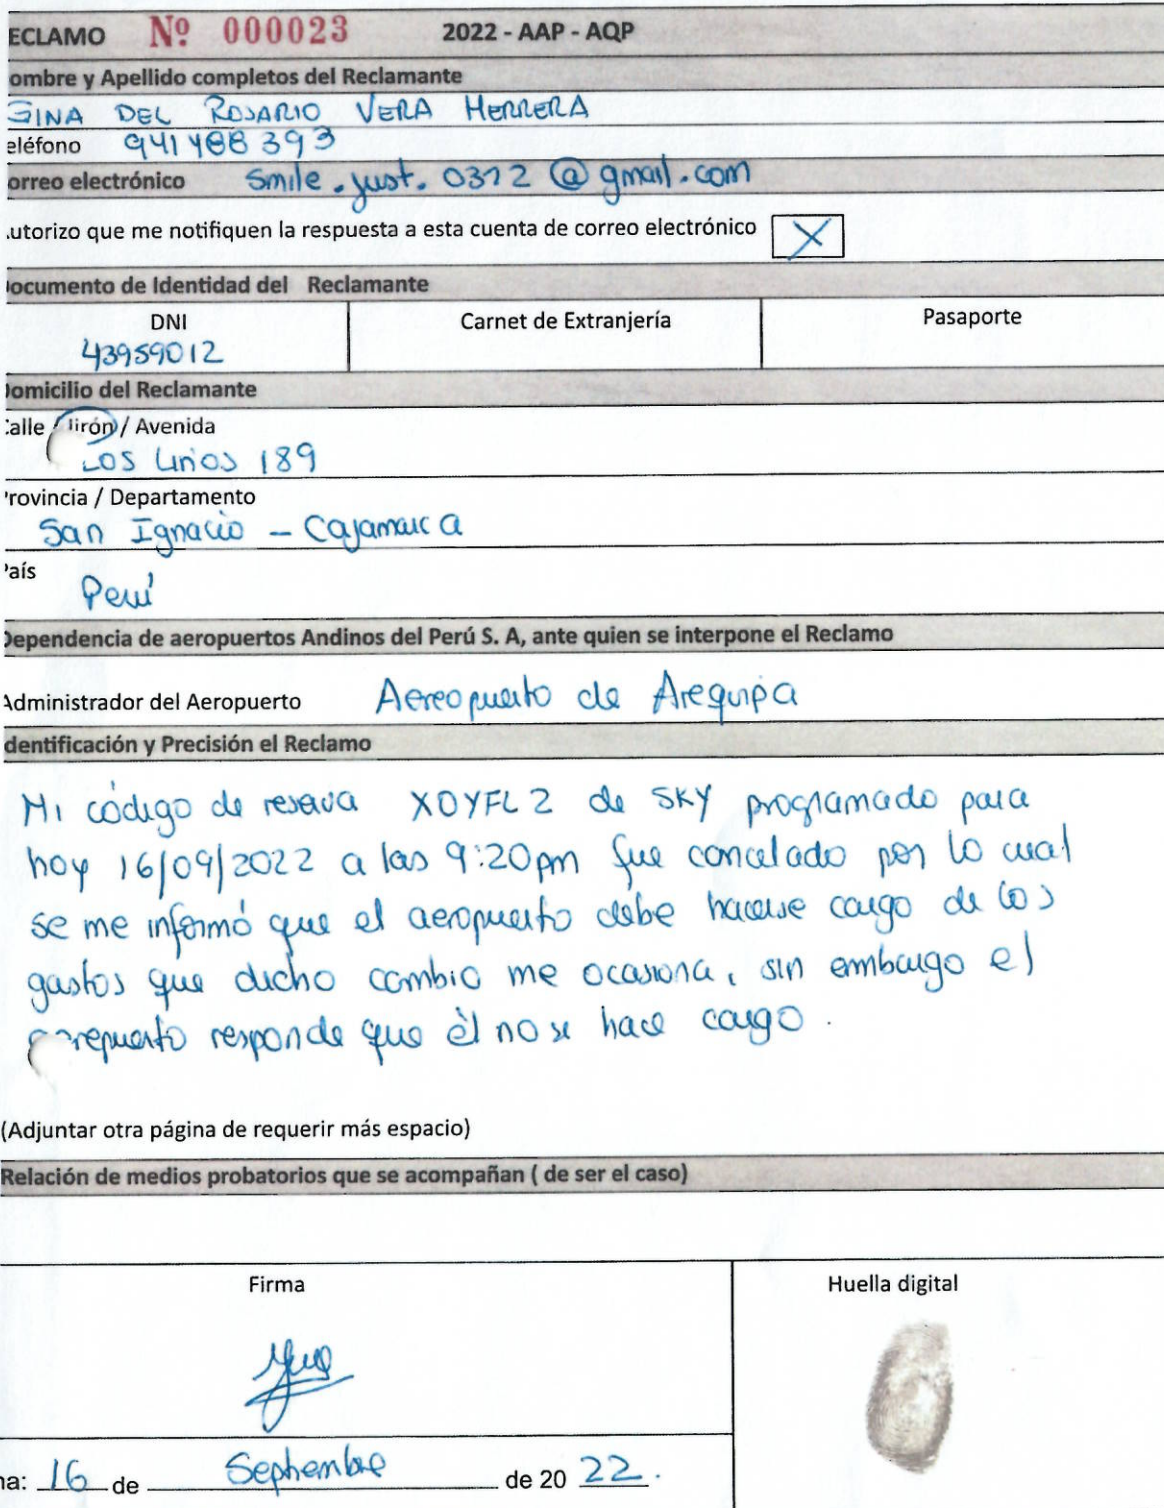 ECLAMO Nº 000023 2022 - AAP - AQP
ombre y Apellido completos del Reclamante
GINA DEL ROSARIO VERA HERRERA
eléfono 941488393
orreo electrónico smile.just.0312@gmail.com
utorizo que me notifiquen la respuesta a esta cuenta de correo electrónico X
ocumento de Identidad del Reclamante
DNI Carnet de Extranjería Pasaporte
43959012
omicilio del Reclamante
alle / Jirón / Avenida
Los Lirios 189
rovincia / Departamento
San Ignacio - Cajamarca
aís
Perú
Dependencia de aeropuertos Andinos del Perú S. A, ante quien se interpone el Reclamo
Administrador del Aeropuerto Aereopuerto de Arequipa
dentificación y Precisión el Reclamo
Mi código de reserva XOYFLZ de SKY programado para
hoy 16/09/2022 a las 9:20pm fue cancelado por lo cual
se me informó que el aeropuerto debe hacerse cargo de los
gastos que dicho cambio me ocasiona, sin embargo el
responde que èl no se hace cargo.
(Adjuntar otra página de requerir más espacio)
Relación de medios probatorios que se acompañan ( de ser el caso)
Firma Huella digital
ha: 16 de Septiembre de 20 22.